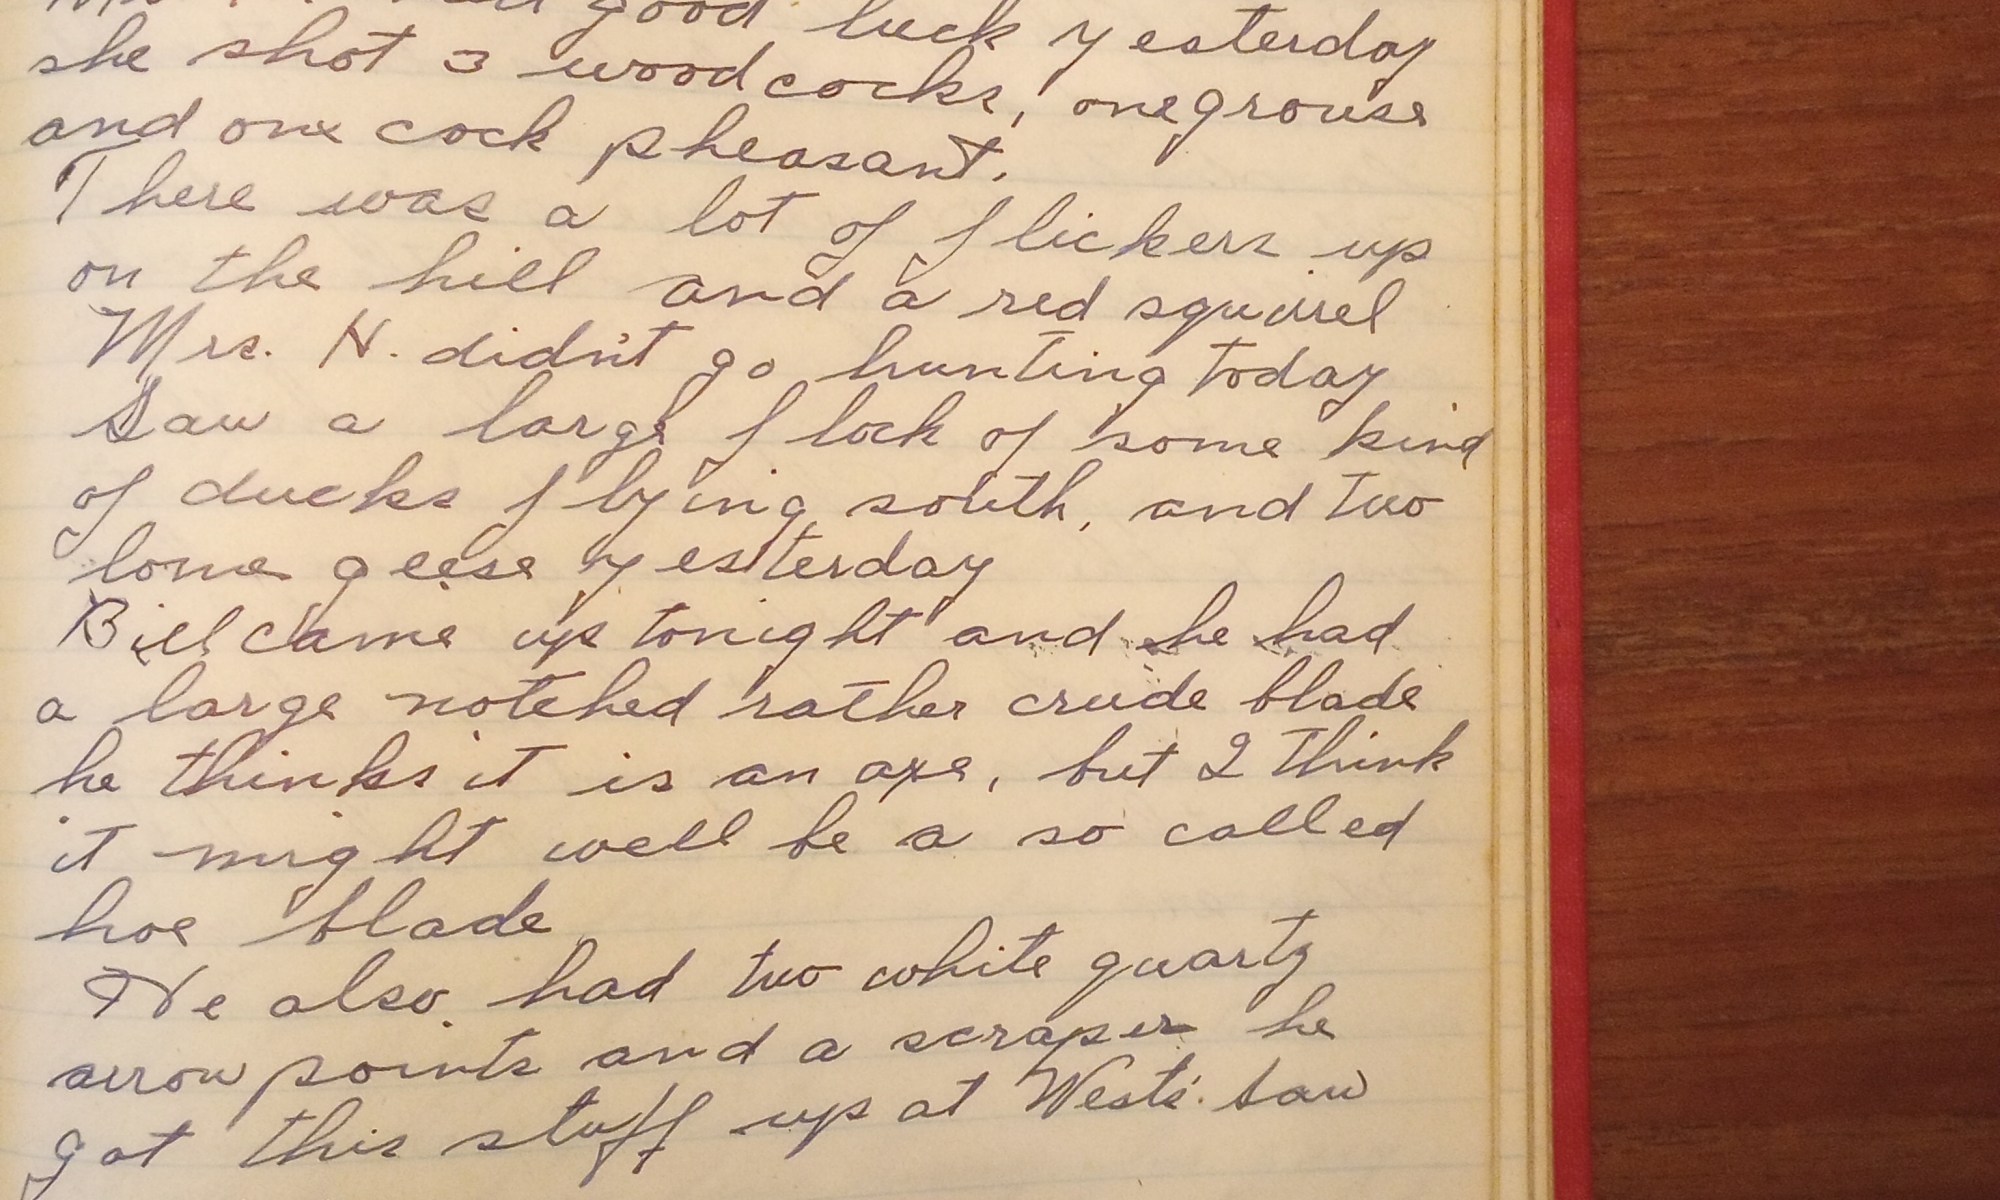 good luck yesterday
she shot 3 woodcocks, one grouse
and one cock pheasant.
There was a lot of flickers up
on the hill and a red squirrel
Mrs. N. didn't go hunting today
Saw a large flock of some kind
of ducks flying south, and two
lone geese yesterday
Bill came up tonight and he had
a large notched rather crude blade
he thinks it is an axe, but I think
it might well be a so called
hoe blade
He also had two white quartz
arrow points and a scraper he
got this stuff up at Wests'. Saw